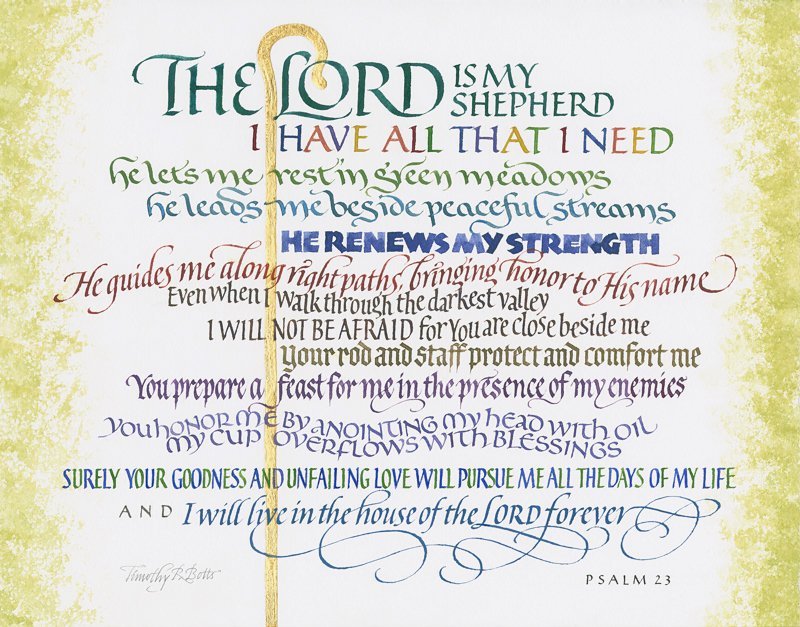 THE LORD IS MY SHEPHERD
I HAVE ALL THAT I NEED
he lets me rest in green meadows
he leads me beside peaceful streams
HE RENEWS MY STRENGTH
He guides me along right paths, bringing honor to His name
Even when I walk through the darkest valley
I WILL NOT BE AFRAID for You are close beside me
Your rod and staff protect and comfort me
You prepare a feast for me in the presence of my enemies
YOU HONOR ME BY ANOINTING MY HEAD WITH OIL
MY CUP OVERFLOWS WITH BLESSINGS
SURELY YOUR GOODNESS AND UNFAILING LOVE WILL PURSUE ME ALL THE DAYS OF MY LIFE
AND I will live in the house of the LORD forever
Timothy R. Botts
PSALM 23